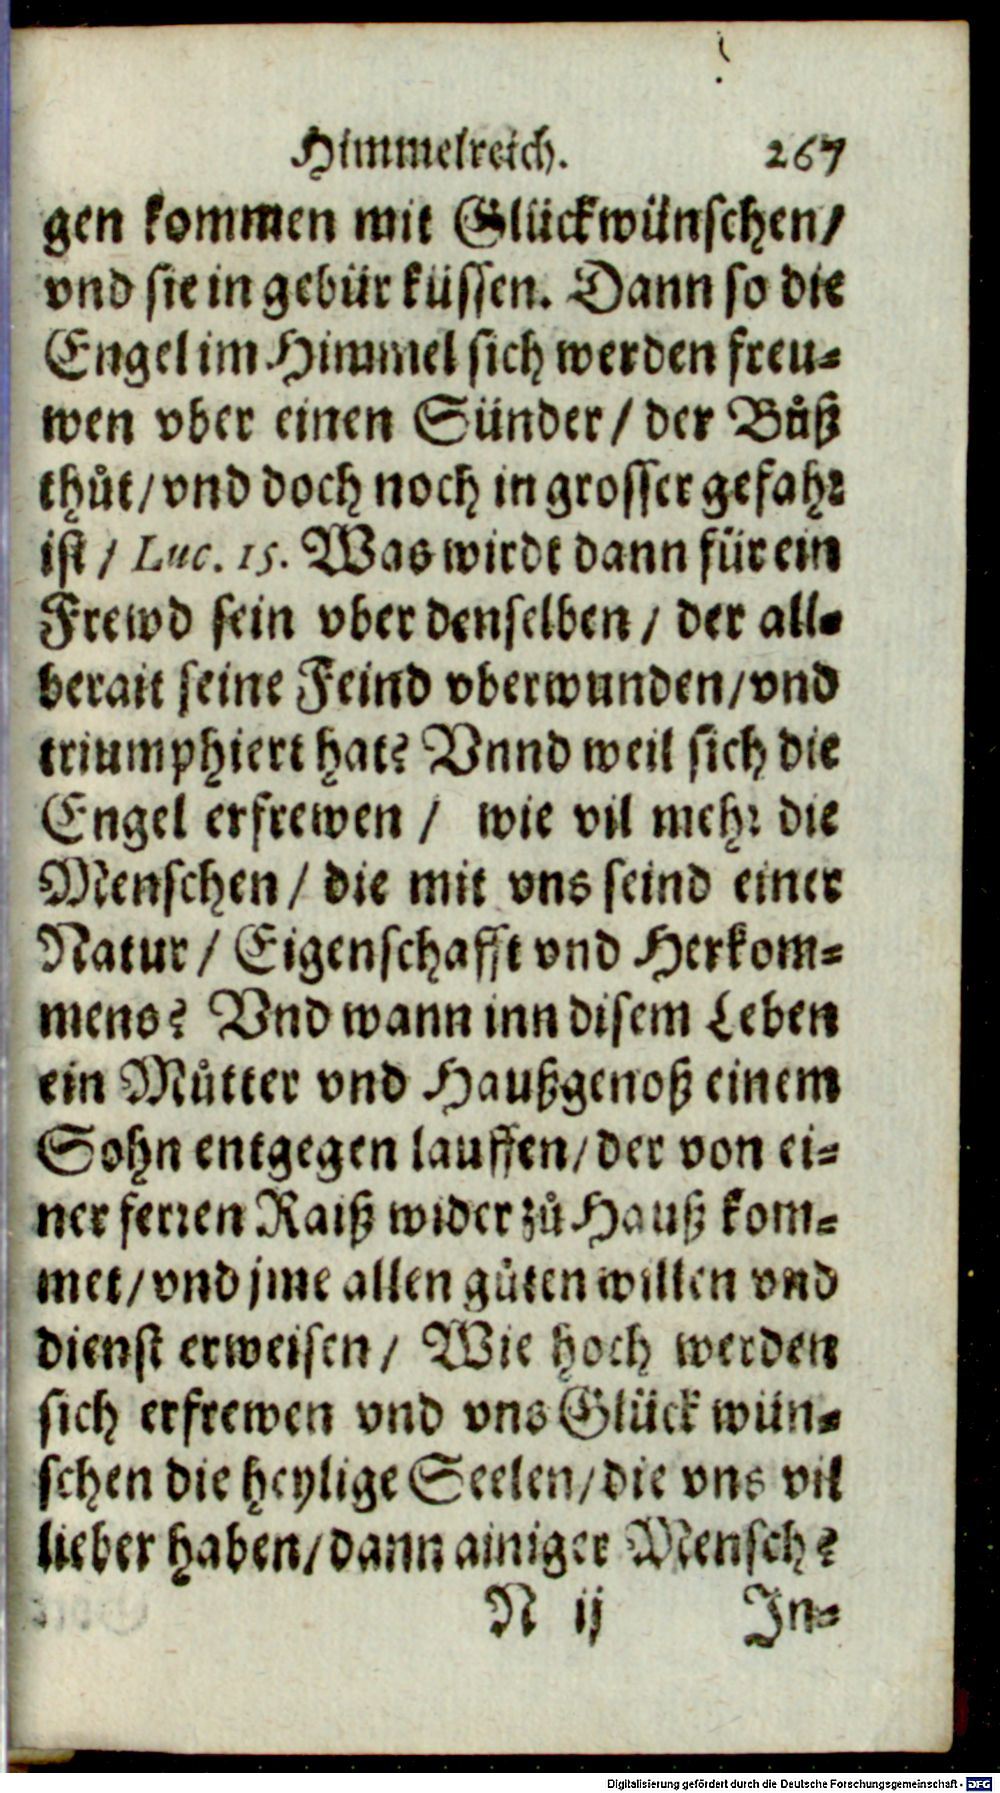 Himmelreich. 267
gen kommen mit Glückwünschen/
vnd sie in gebür küssen. Dann so die
Engel im Himmel sich werden freu-
wen vber einen Sünder/ der Bůß
thůt/ vnd doch noch in grosser gefahr
ist/ Luc. 15. Was wirdt dann für ein
Frewd sein vber denselben/ der all-
berait seine Feind vberwunden/ vnd
triumphiert hat? Vnnd weil sich die
Engel erfrewen/ wie vil mehr die
Menschen/ die mit vns seind einer
Natur/ Eigenschafft vnd Herkom-
mens? Vnd wann inn disem Leben
ein Můtter vnd Haußgenoß einem
Sohn entgegen lauffen/ der von ei-
ner ferren Raiß wider zů Hauß kom-
met/ vnd jme allen gůten willen vnd
dienst erweisen/ Wie hoch werden
sich erfrewen vnd vns Glück wün-
schen die heylige Seelen/ die vns vil
lieber haben/ dann ainiger Mensch?
N ij In-
Digitalisierung gefördert durch die Deutsche Forschungsgemeinschaft - DFG